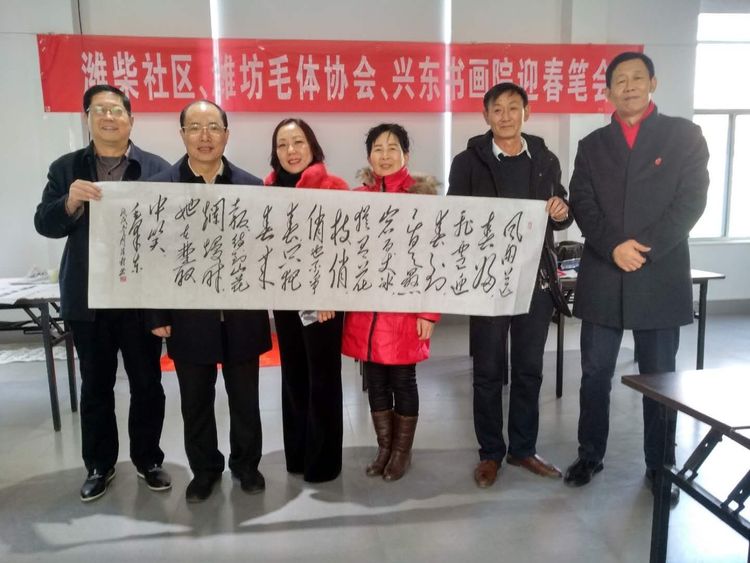 潍柴社区、潍坊毛体协会、兴东书画院迎春笔会
风雨送
春归
飞雪迎
春到
已是悬
崖百丈冰
犹有花
枝俏
俏也不争
春只把
春来
报待到山花
烂漫时
她在丛
中笑
毛泽东